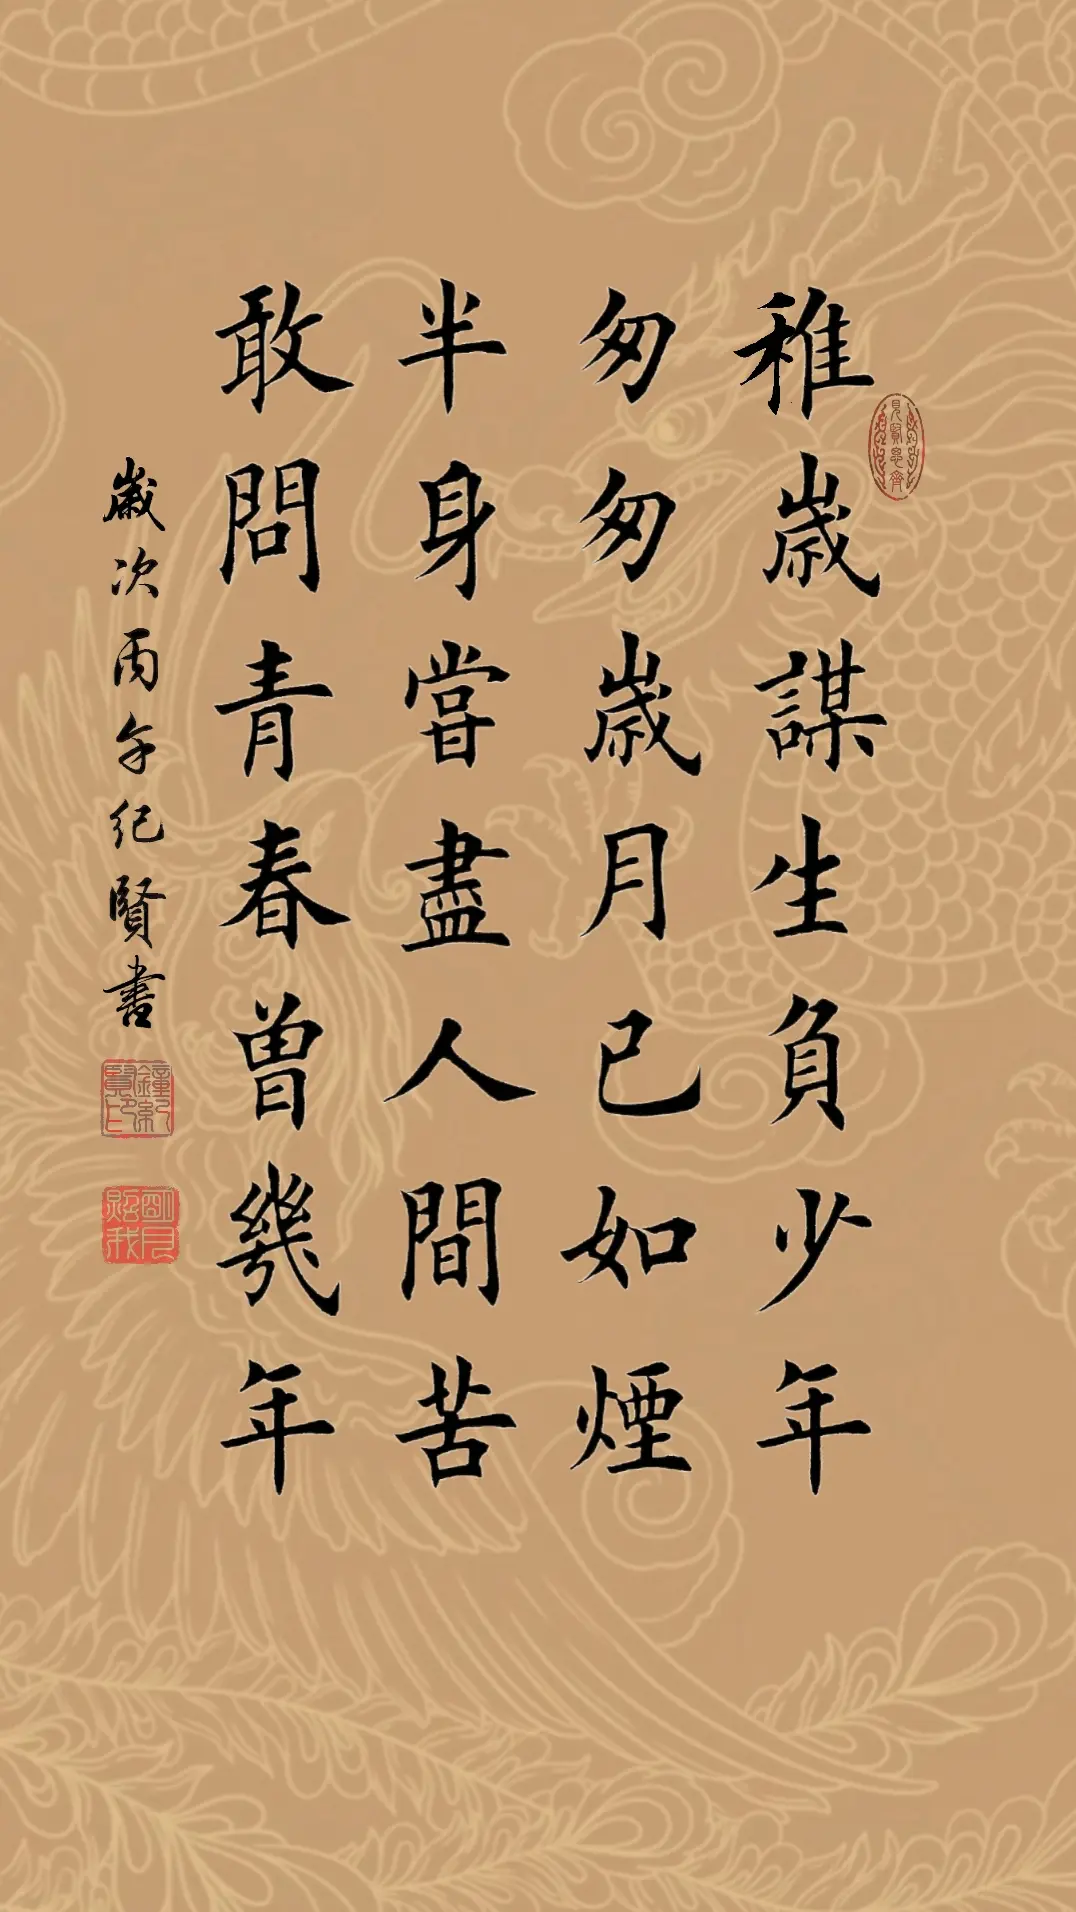 稚歲謀生負少年
匆匆歲月已如煙
半身嘗盡人間苦
敢問青春曾幾年
歲次丙午紀賢書
見賢思齊
鐘紀賢印